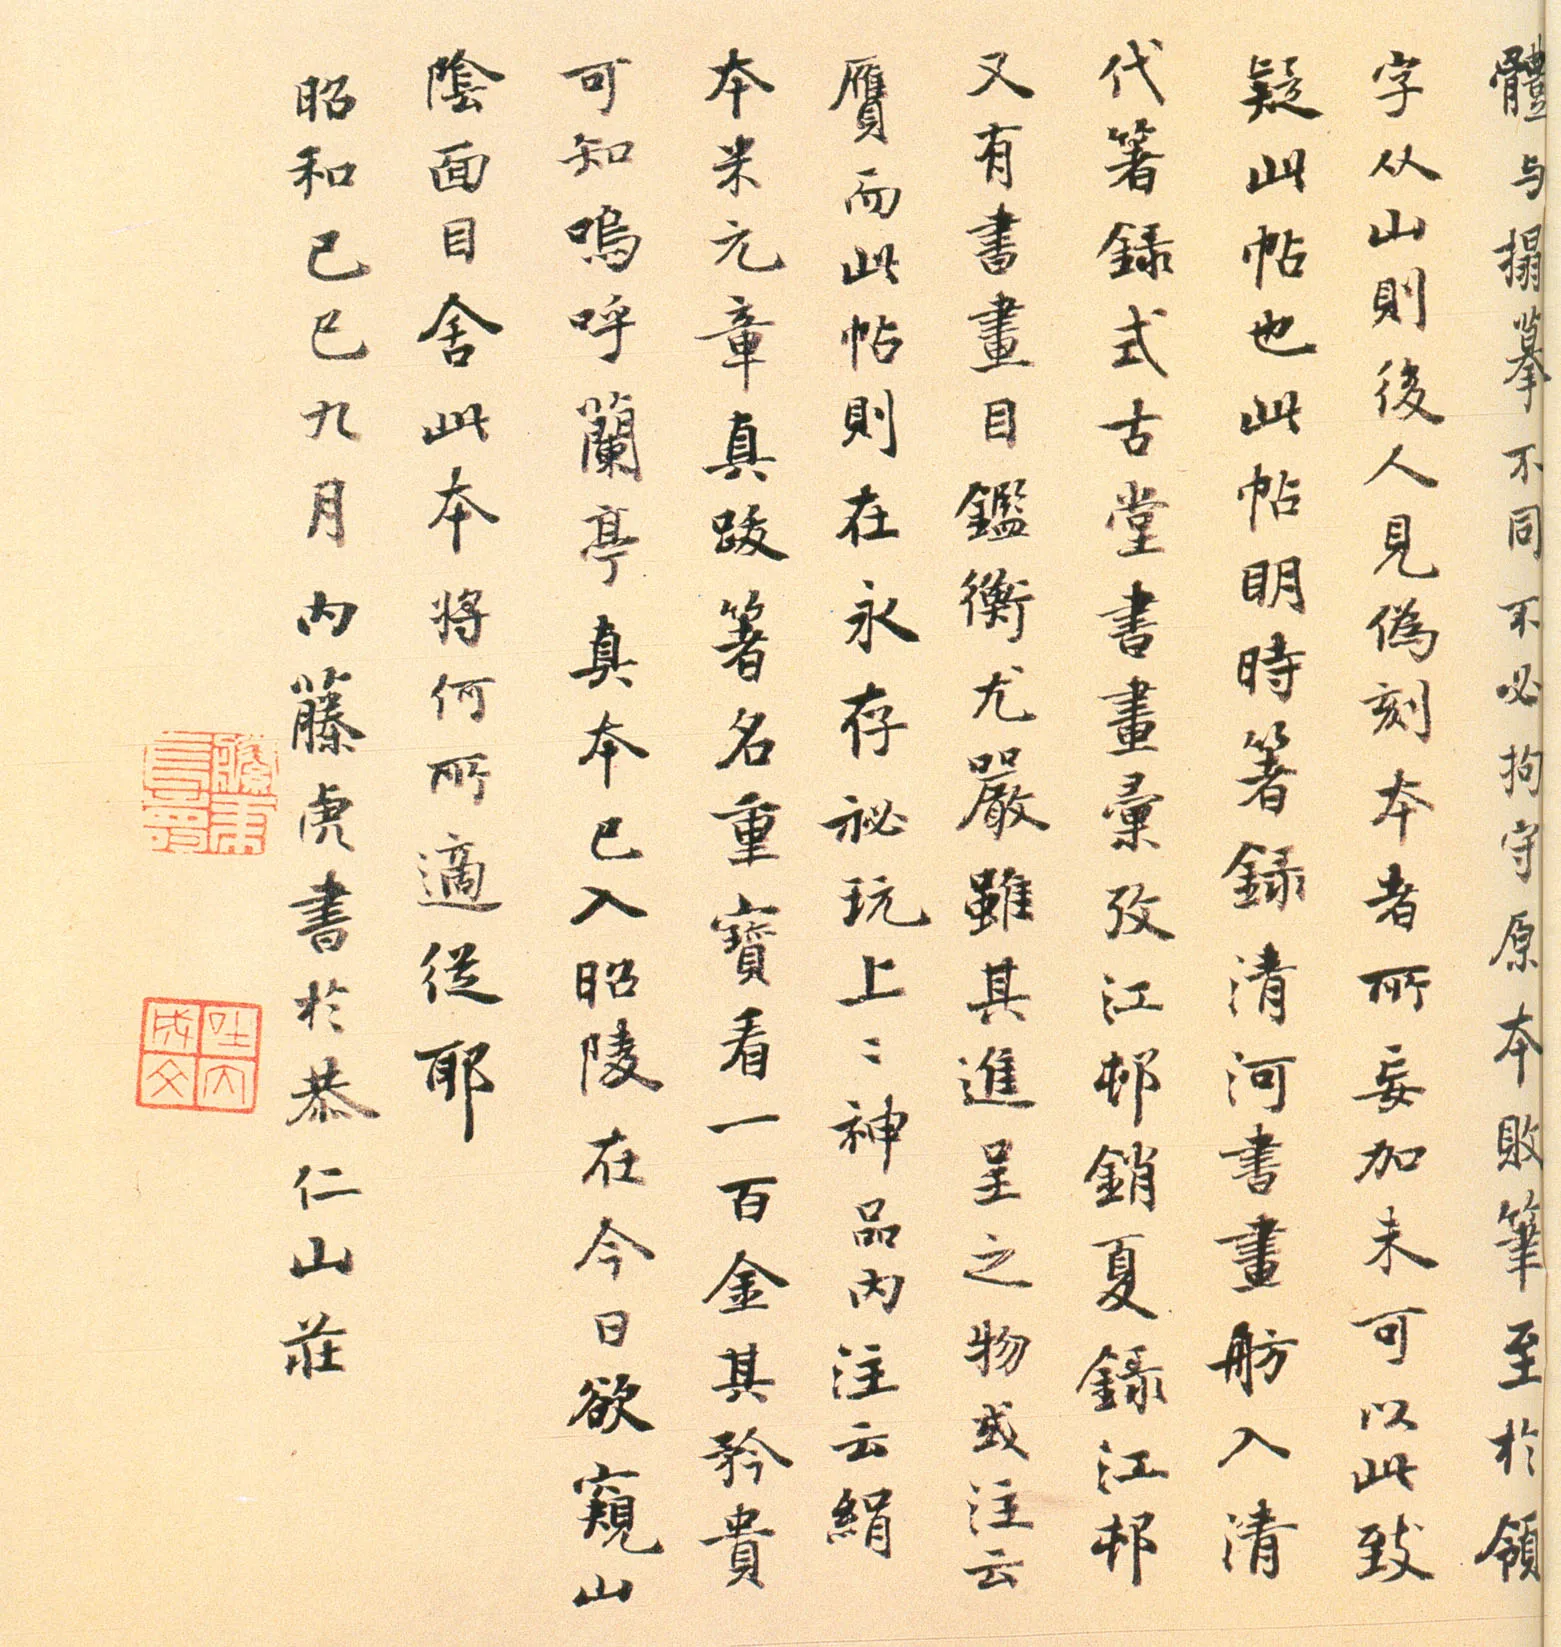 體与搨摹不同不必拘守原本敗筆至於領
字从山則後人見偽刻本者所妄加未可以此致
疑此帖也此帖明時箸録清河書畫舫入清
代箸録式古堂書畫彙攷江邨銷夏録江邨
又有書畫目鑑衡尤嚴雖其進呈之物或注云
贋而此帖則在永存祕玩上上神品内注云絹
本米元章真跋箸名重寶看一百金其矜貴
可知嗚呼蘭亭真本已入昭陵在今日欲窺山
陰面目舍此本將何所適從耶
昭和己巳九月内藤虎書於恭仁山莊